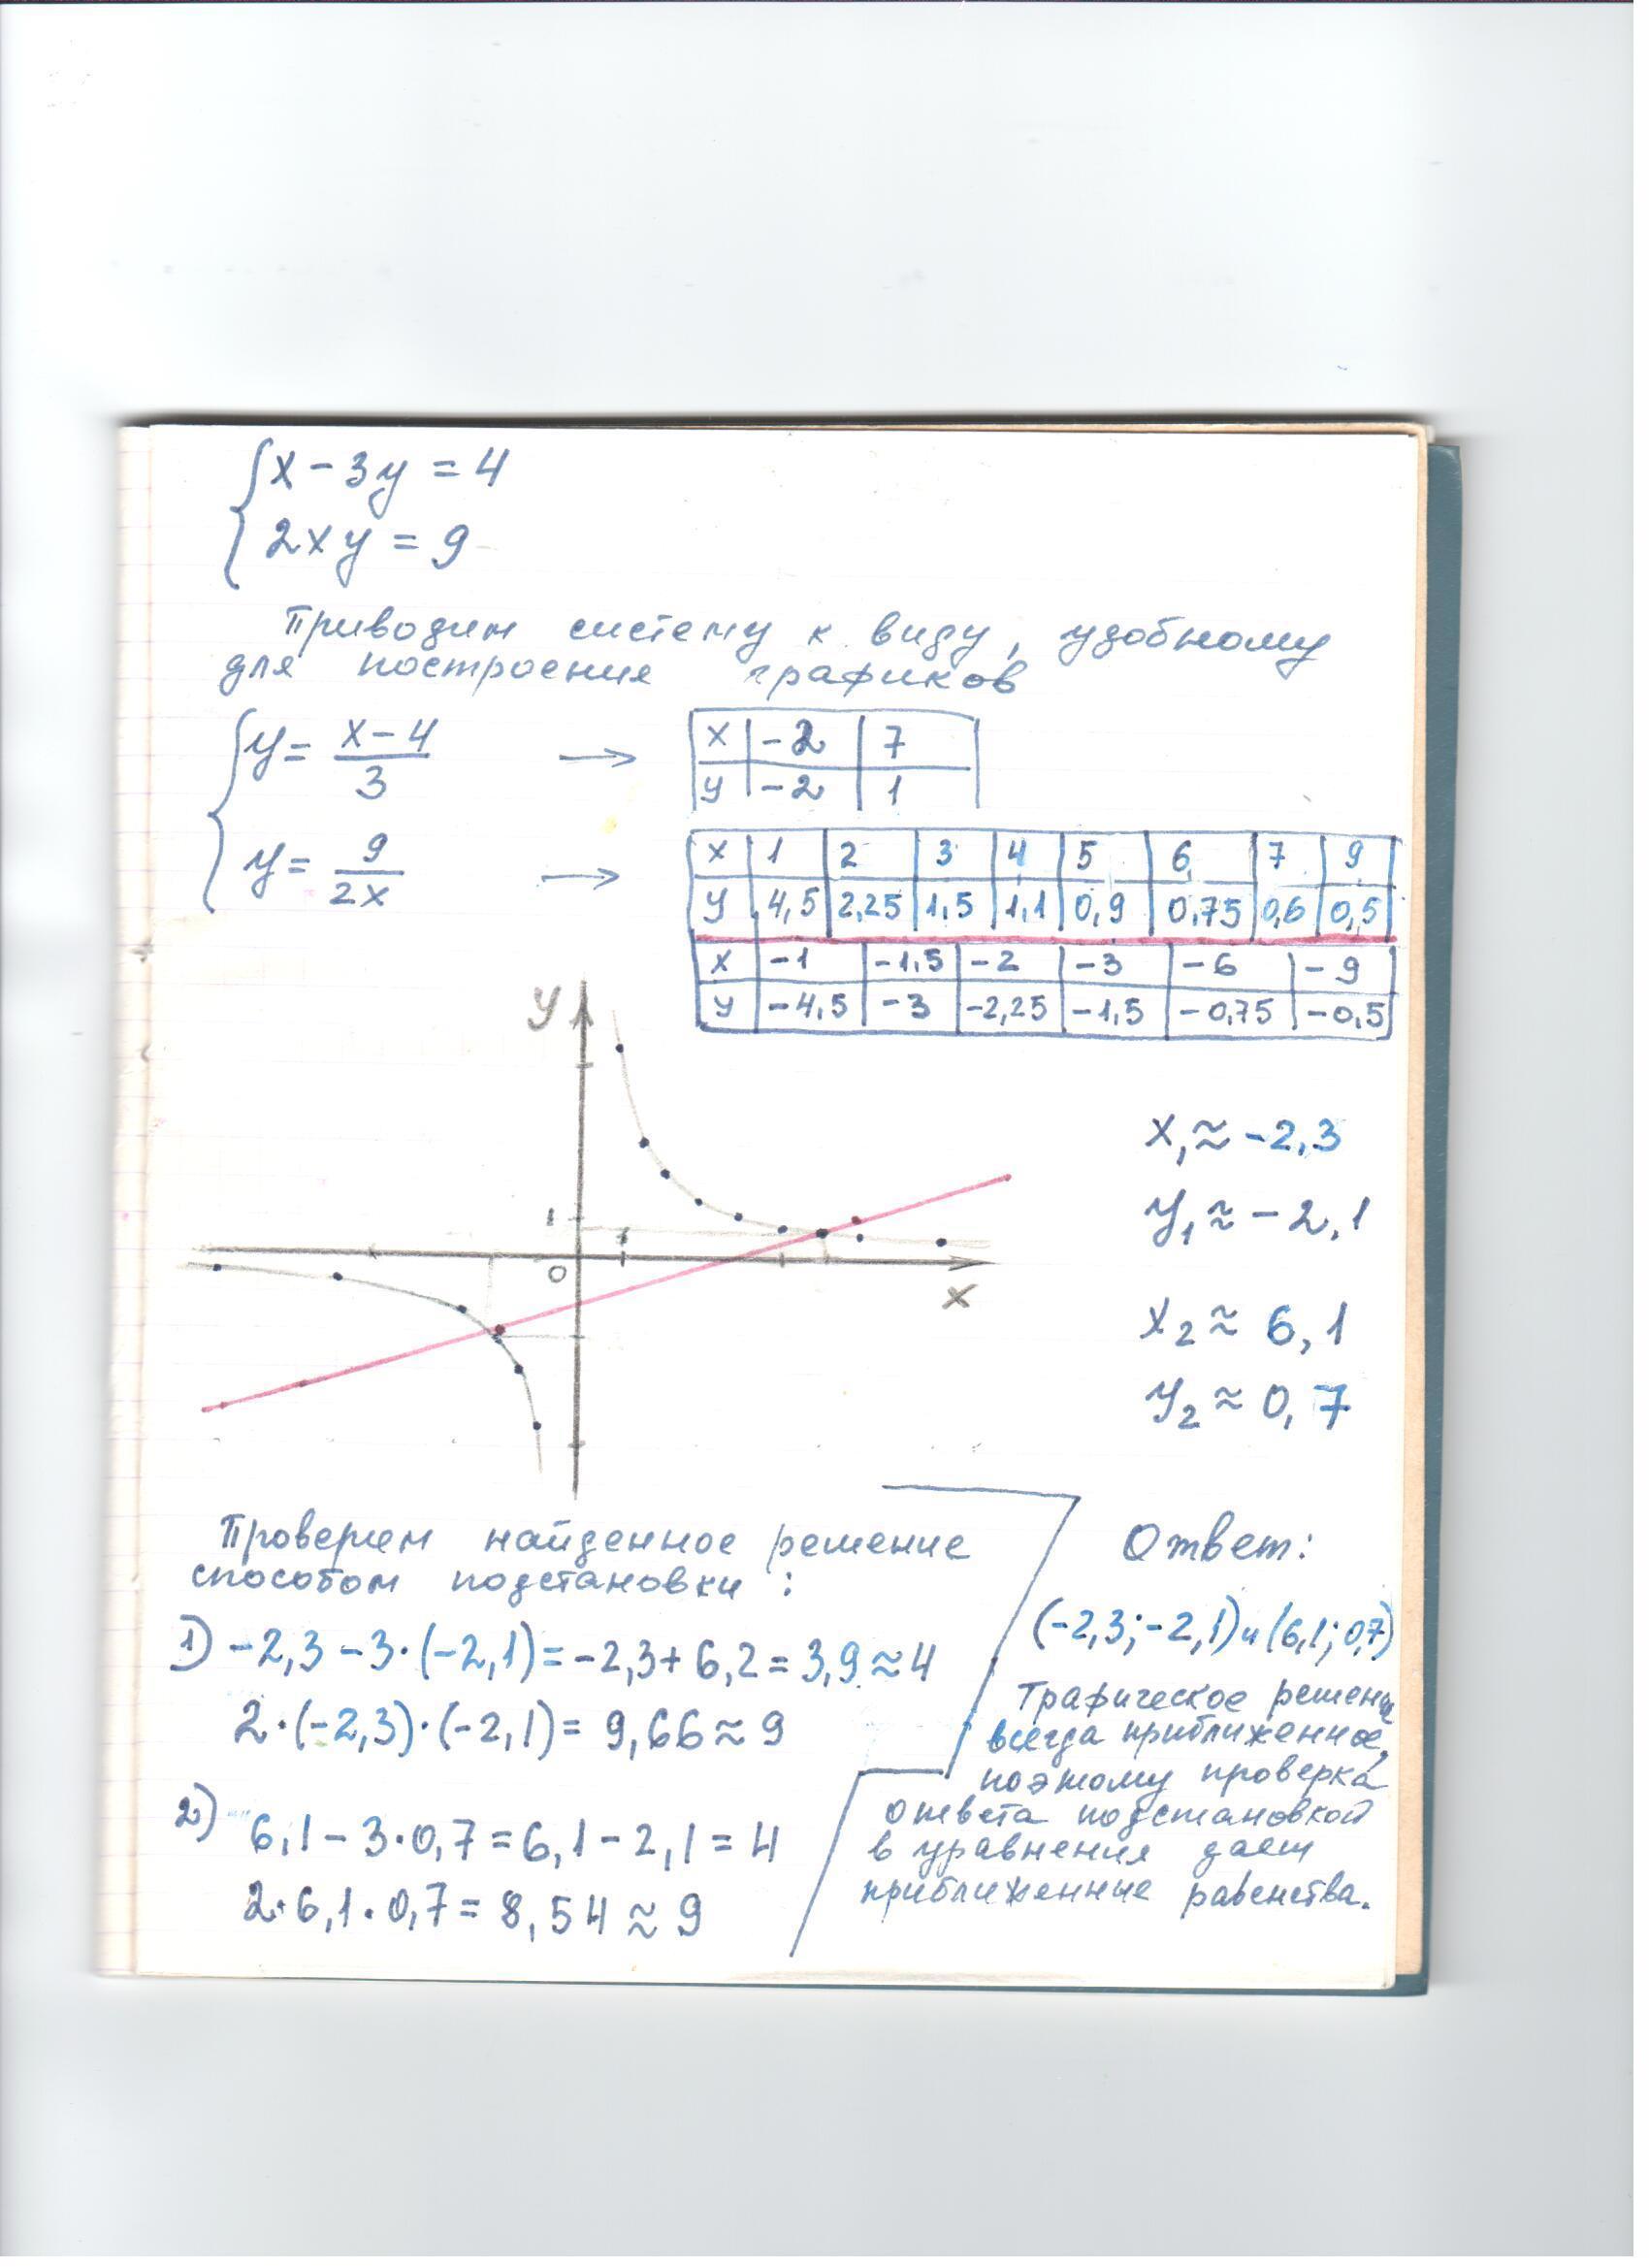 x - 3y = 4
2xy = 9
Приводим систему к виду, удобному
для построения графиков
y = (x - 4)/3 → x | -2 | 7
y | -2 | 1
y = 9/(2x) → x | 1 | 2 | 3 | 4 | 5 | 6 | 7 | 9
y | 4,5 | 2,25 | 1,5 | 1,1 | 0,9 | 0,75 | 0,6 | 0,5
x | -1 | -1,5 | -2 | -3 | -6 | -9
y | -4,5 | -3 | -2,25 | -1,5 | -0,75 | -0,5
y
1
1
0
x
x₁ ≈ -2,3
y₁ ≈ -2,1
x₂ ≈ 6,1
y₂ ≈ 0,7
Проверим найденное решение
способом подстановки:
1) -2,3 - 3·(-2,1) = -2,3 + 6,2 = 3,9 ≈ 4
2·(-2,3)·(-2,1) = 9,66 ≈ 9
2) 6,1 - 3·0,7 = 6,1 - 2,1 = 4
2·6,1·0,7 = 8,54 ≈ 9
Ответ:
(-2,3; -2,1) и (6,1; 0,7)
Графическое решение
всегда приближенное,
поэтому проверка
ответа подстановкой
в уравнения дает
приближенные равенства.